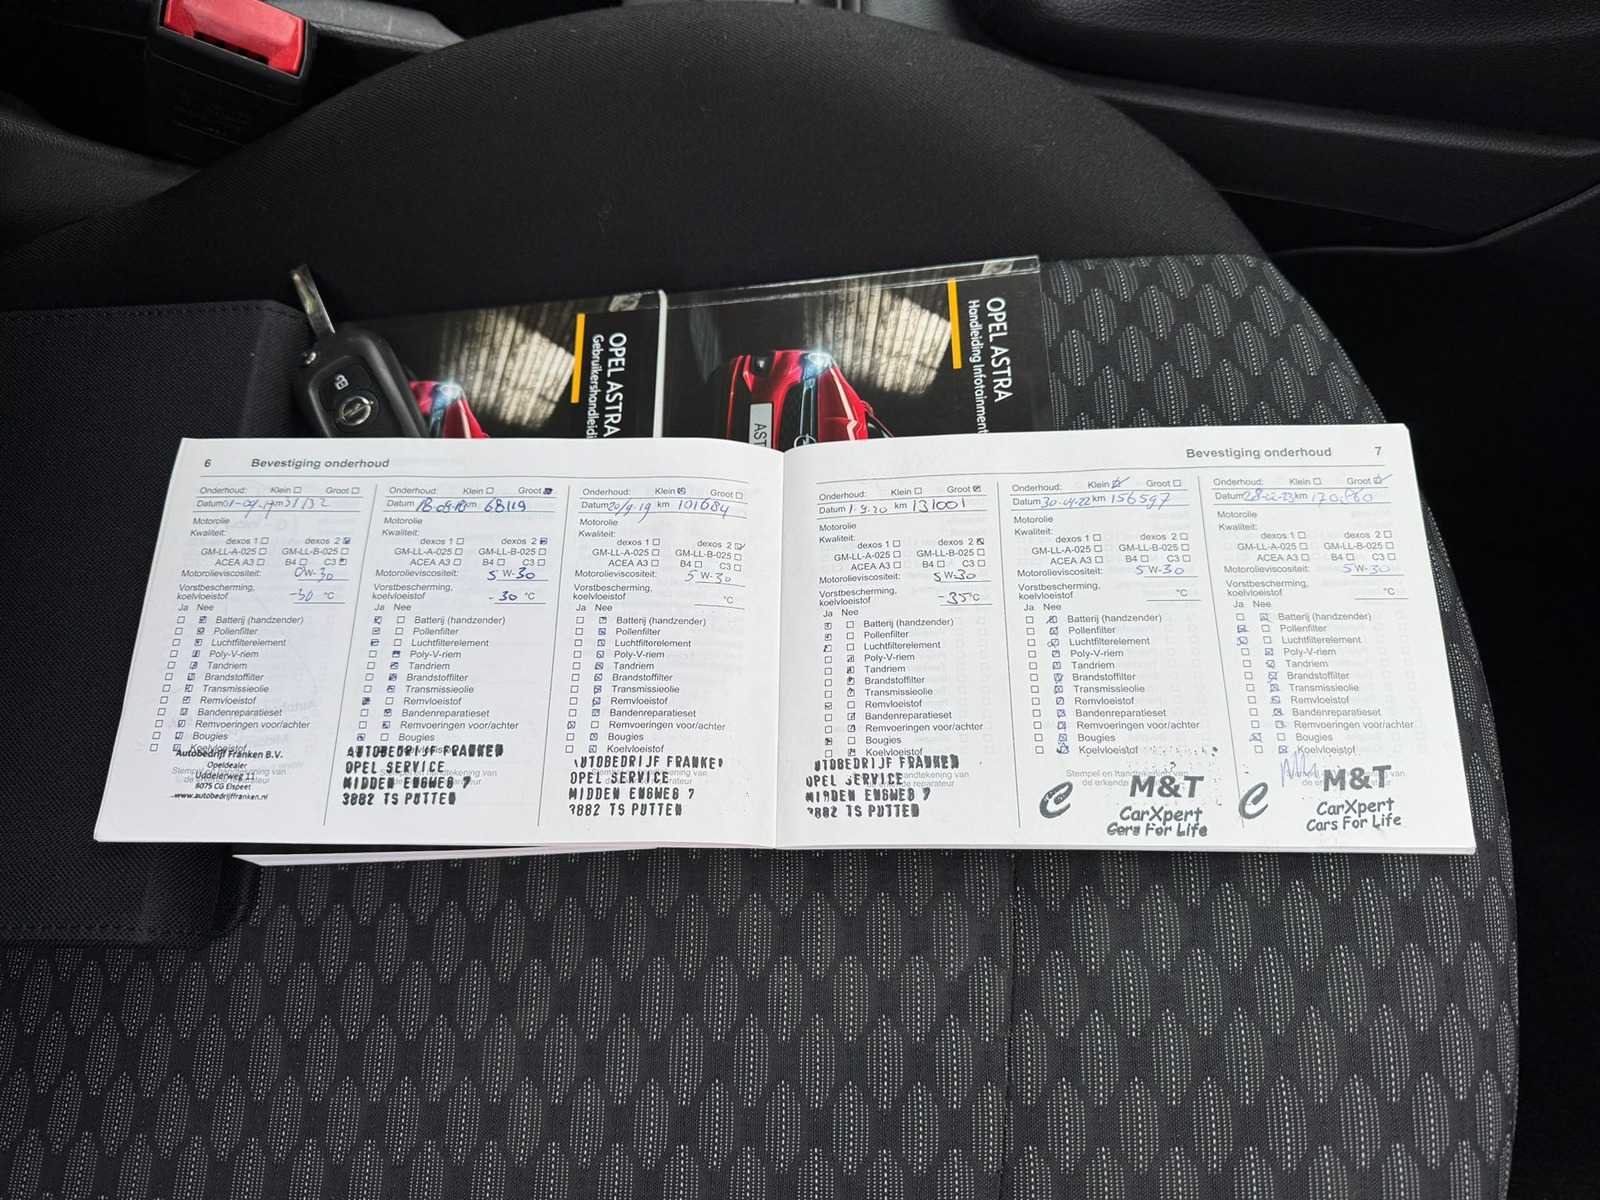 OPEL ASTRA
Gebruikershandleidi
OPEL ASTRA
Handleiding Infotainment
AST
6 Bevestiging onderhoud
Onderhoud: Klein Groot
Datum km
Motorolie
Kwaliteit:
dexos 1 dexos 2
GM-LL-A-025 GM-LL-B-025
ACEA A3 B4 C3
Motorolieviscositeit: 0W-30
Vorstbescherming,
koelvloeistof -30 °C
Ja Nee
Batterij (handzender)
Pollenfilter
Luchtfilterelement
Poly-V-riem
Tandriem
Brandstoffilter
Transmissieolie
Remvloeistof
Bandenreparatieset
Remvoeringen voor/achter
Bougies
Koelvloeistof
Autobedrijf Franken B.V.
Opeldealer
Uddelerweg 11
8075 CG Elspeet
www.autobedrijffranken.nl
Onderhoud: Klein Groot
Datum km 68119
Motorolie
Kwaliteit:
dexos 1 dexos 2
GM-LL-A-025 GM-LL-B-025
ACEA A3 B4 C3
Motorolieviscositeit: 5W-30
Vorstbescherming,
koelvloeistof -30 °C
Ja Nee
Batterij (handzender)
Pollenfilter
Luchtfilterelement
Poly-V-riem
Tandriem
Brandstoffilter
Transmissieolie
Remvloeistof
Bandenreparatieset
Remvoeringen voor/achter
Bougies
Koelvloeistof
AUTOBEDRIJF FRANKEN
OPEL SERVICE
MIDDEN ENGWEG 7
3882 TS PUTTEN
Onderhoud: Klein Groot
Datum 20/9-19 km 101684
Motorolie
Kwaliteit:
dexos 1 dexos 2
GM-LL-A-025 GM-LL-B-025
ACEA A3 B4 C3
Motorolieviscositeit: 5W-30
Vorstbescherming,
koelvloeistof °C
Ja Nee
Batterij (handzender)
Pollenfilter
Luchtfilterelement
Poly-V-riem
Tandriem
Brandstoffilter
Transmissieolie
Remvloeistof
Bandenreparatieset
Remvoeringen voor/achter
Bougies
Koelvloeistof
AUTOBEDRIJF FRANKEN
OPEL SERVICE
MIDDEN ENGWEG 7
3882 TS PUTTEN
Bevestiging onderhoud 7
Onderhoud: Klein Groot
Datum 1-9-20 km 131001
Motorolie
Kwaliteit:
dexos 1 dexos 2
GM-LL-A-025 GM-LL-B-025
ACEA A3 B4 C3
Motorolieviscositeit: 5W-30
Vorstbescherming,
koelvloeistof -35°C
Ja Nee
Batterij (handzender)
Pollenfilter
Luchtfilterelement
Poly-V-riem
Tandriem
Brandstoffilter
Transmissieolie
Remvloeistof
Bandenreparatieset
Remvoeringen voor/achter
Bougies
Koelvloeistof
AUTOBEDRIJF FRANKEN
OPEL SERVICE
MIDDEN ENGWEG 7
3882 TS PUTTEN
Onderhoud: Klein Groot
Datum 30-04-22 km 156597
Motorolie
Kwaliteit:
dexos 1 dexos 2
GM-LL-A-025 GM-LL-B-025
ACEA A3 B4 C3
Motorolieviscositeit: 5W-30
Vorstbescherming,
koelvloeistof °C
Ja Nee
Batterij (handzender)
Pollenfilter
Luchtfilterelement
Poly-V-riem
Tandriem
Brandstoffilter
Transmissieolie
Remvloeistof
Bandenreparatieset
Remvoeringen voor/achter
Bougies
Koelvloeistof
Stempel en handtekening van
de erkende
M&T
CarXpert
Cars For Life
Onderhoud: Klein Groot
Datum km
Motorolie
Kwaliteit:
dexos 1 dexos 2
GM-LL-A-025 GM-LL-B-025
ACEA A3 B4 C3
Motorolieviscositeit: 5W-30
Vorstbescherming,
koelvloeistof °C
Ja Nee
Batterij (handzender)
Pollenfilter
Luchtfilterelement
Poly-V-riem
Tandriem
Brandstoffilter
Transmissieolie
Remvloeistof
Bandenreparatieset
Remvoeringen voor/achter
Bougies
Koelvloeistof
M&T
CarXpert
Cars For Life